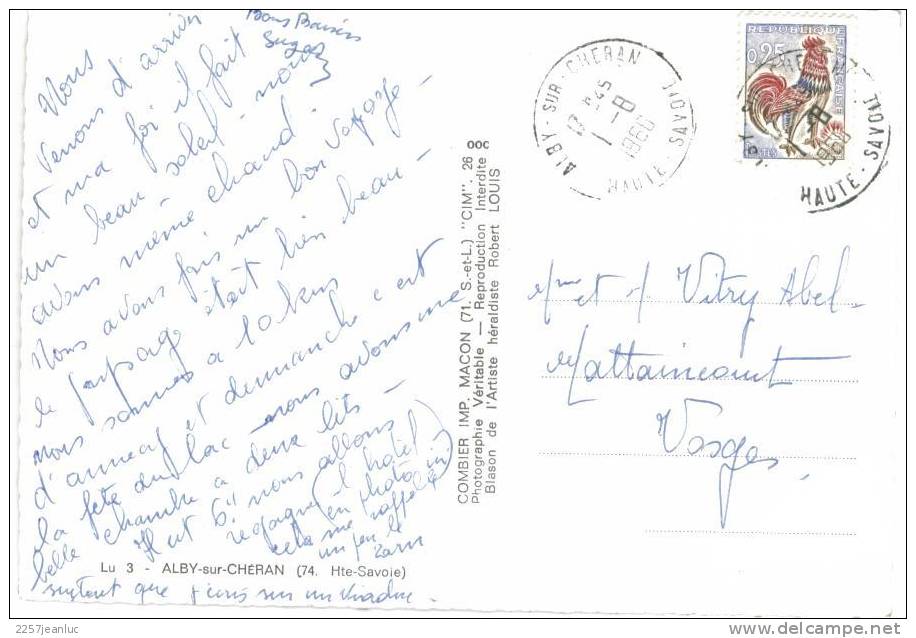 Bons Baisers
Suzon
Nous
venons d'arriver
et ma foi il fait
un beau soleil - nous
avons même chaud.
Nous avons fais un bon voyage -
le paysage était bien beau -
nous sommes à 10 kms
d'annecy et demmanche c'est
la fête du lac - nous avons une
belle chambre a deux lits -
Il est 6h nous allons
regagner l'hotel
en photo ici)
cela me rappelle
un peu le
Tarn
surtout que j'ecris sur un viaduc.
Lu 3 - ALBY-sur-CHÉRAN (74. Hte-Savoie)
COMBIER IMP. MACON (71. S.-et-L.) "CIM". 26 OOC
Photographie Véritable — Reproduction Interdite
Blason de l'Artiste héraldiste Robert LOUIS
ALBY-SUR-CHERAN
1-8
HAUTE-SAVOIE
REPUBLIQUE FRANÇAISE
0,25
POSTES
HAUTE-SAVOIE
Mme et M Vitry Abel
Mattaincourt
Vosges
2257jeanluc
www.delcampe.net